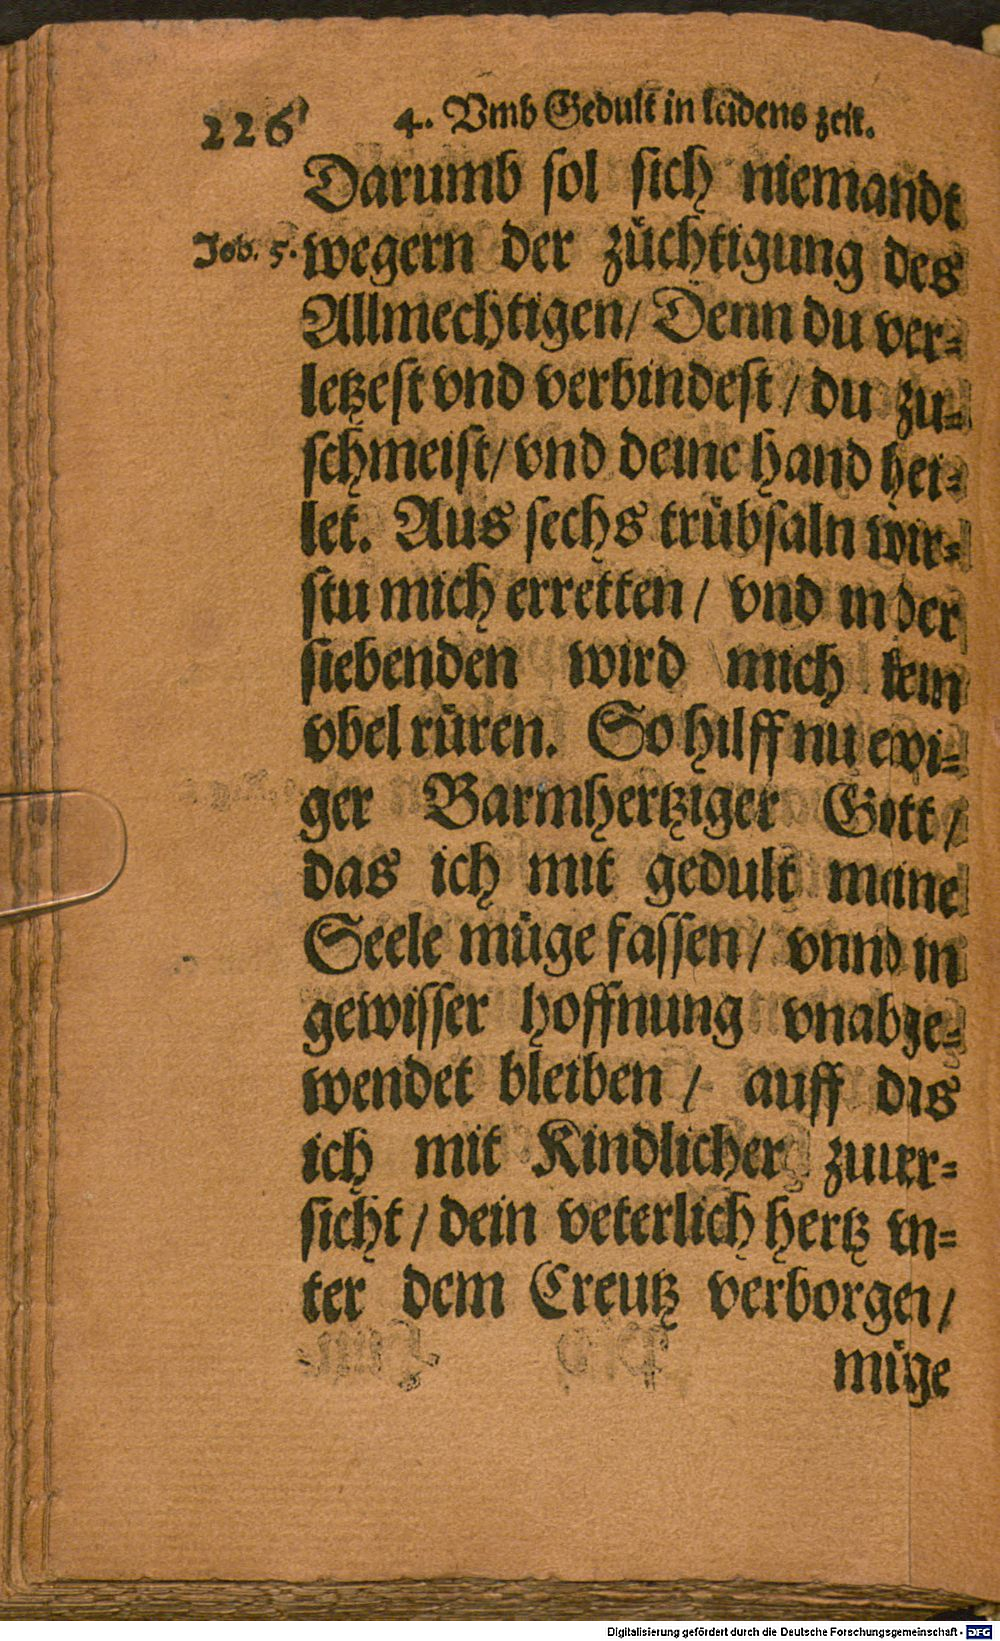 226 4. Vmb Gedult in leidens zeit.
Darumb sol sich niemandt
Job. 5. wegern der züchtigung des
Allmechtigen/ Denn du ver-
letzest vnd verbindest / du zu-
schmeist/ vnd deine hand hei-
let. Aus sechs trübsaln wir-
stu mich erretten / vnd in der
siebenden wird mich kein
vbel rüren. So hilff nu ewi-
ger Barmhertziger Gott /
das ich mit gedult meine
Seele müge fassen / vnnd in
gewisser hoffnung vnabge-
wendet bleiben / auff das
ich mit Kindlicher zuuer-
sicht / dein veterlich hertz vn-
ter dem Creutz verborgen /
müge
Digitalisierung gefördert durch die Deutsche Forschungsgemeinschaft - DFG